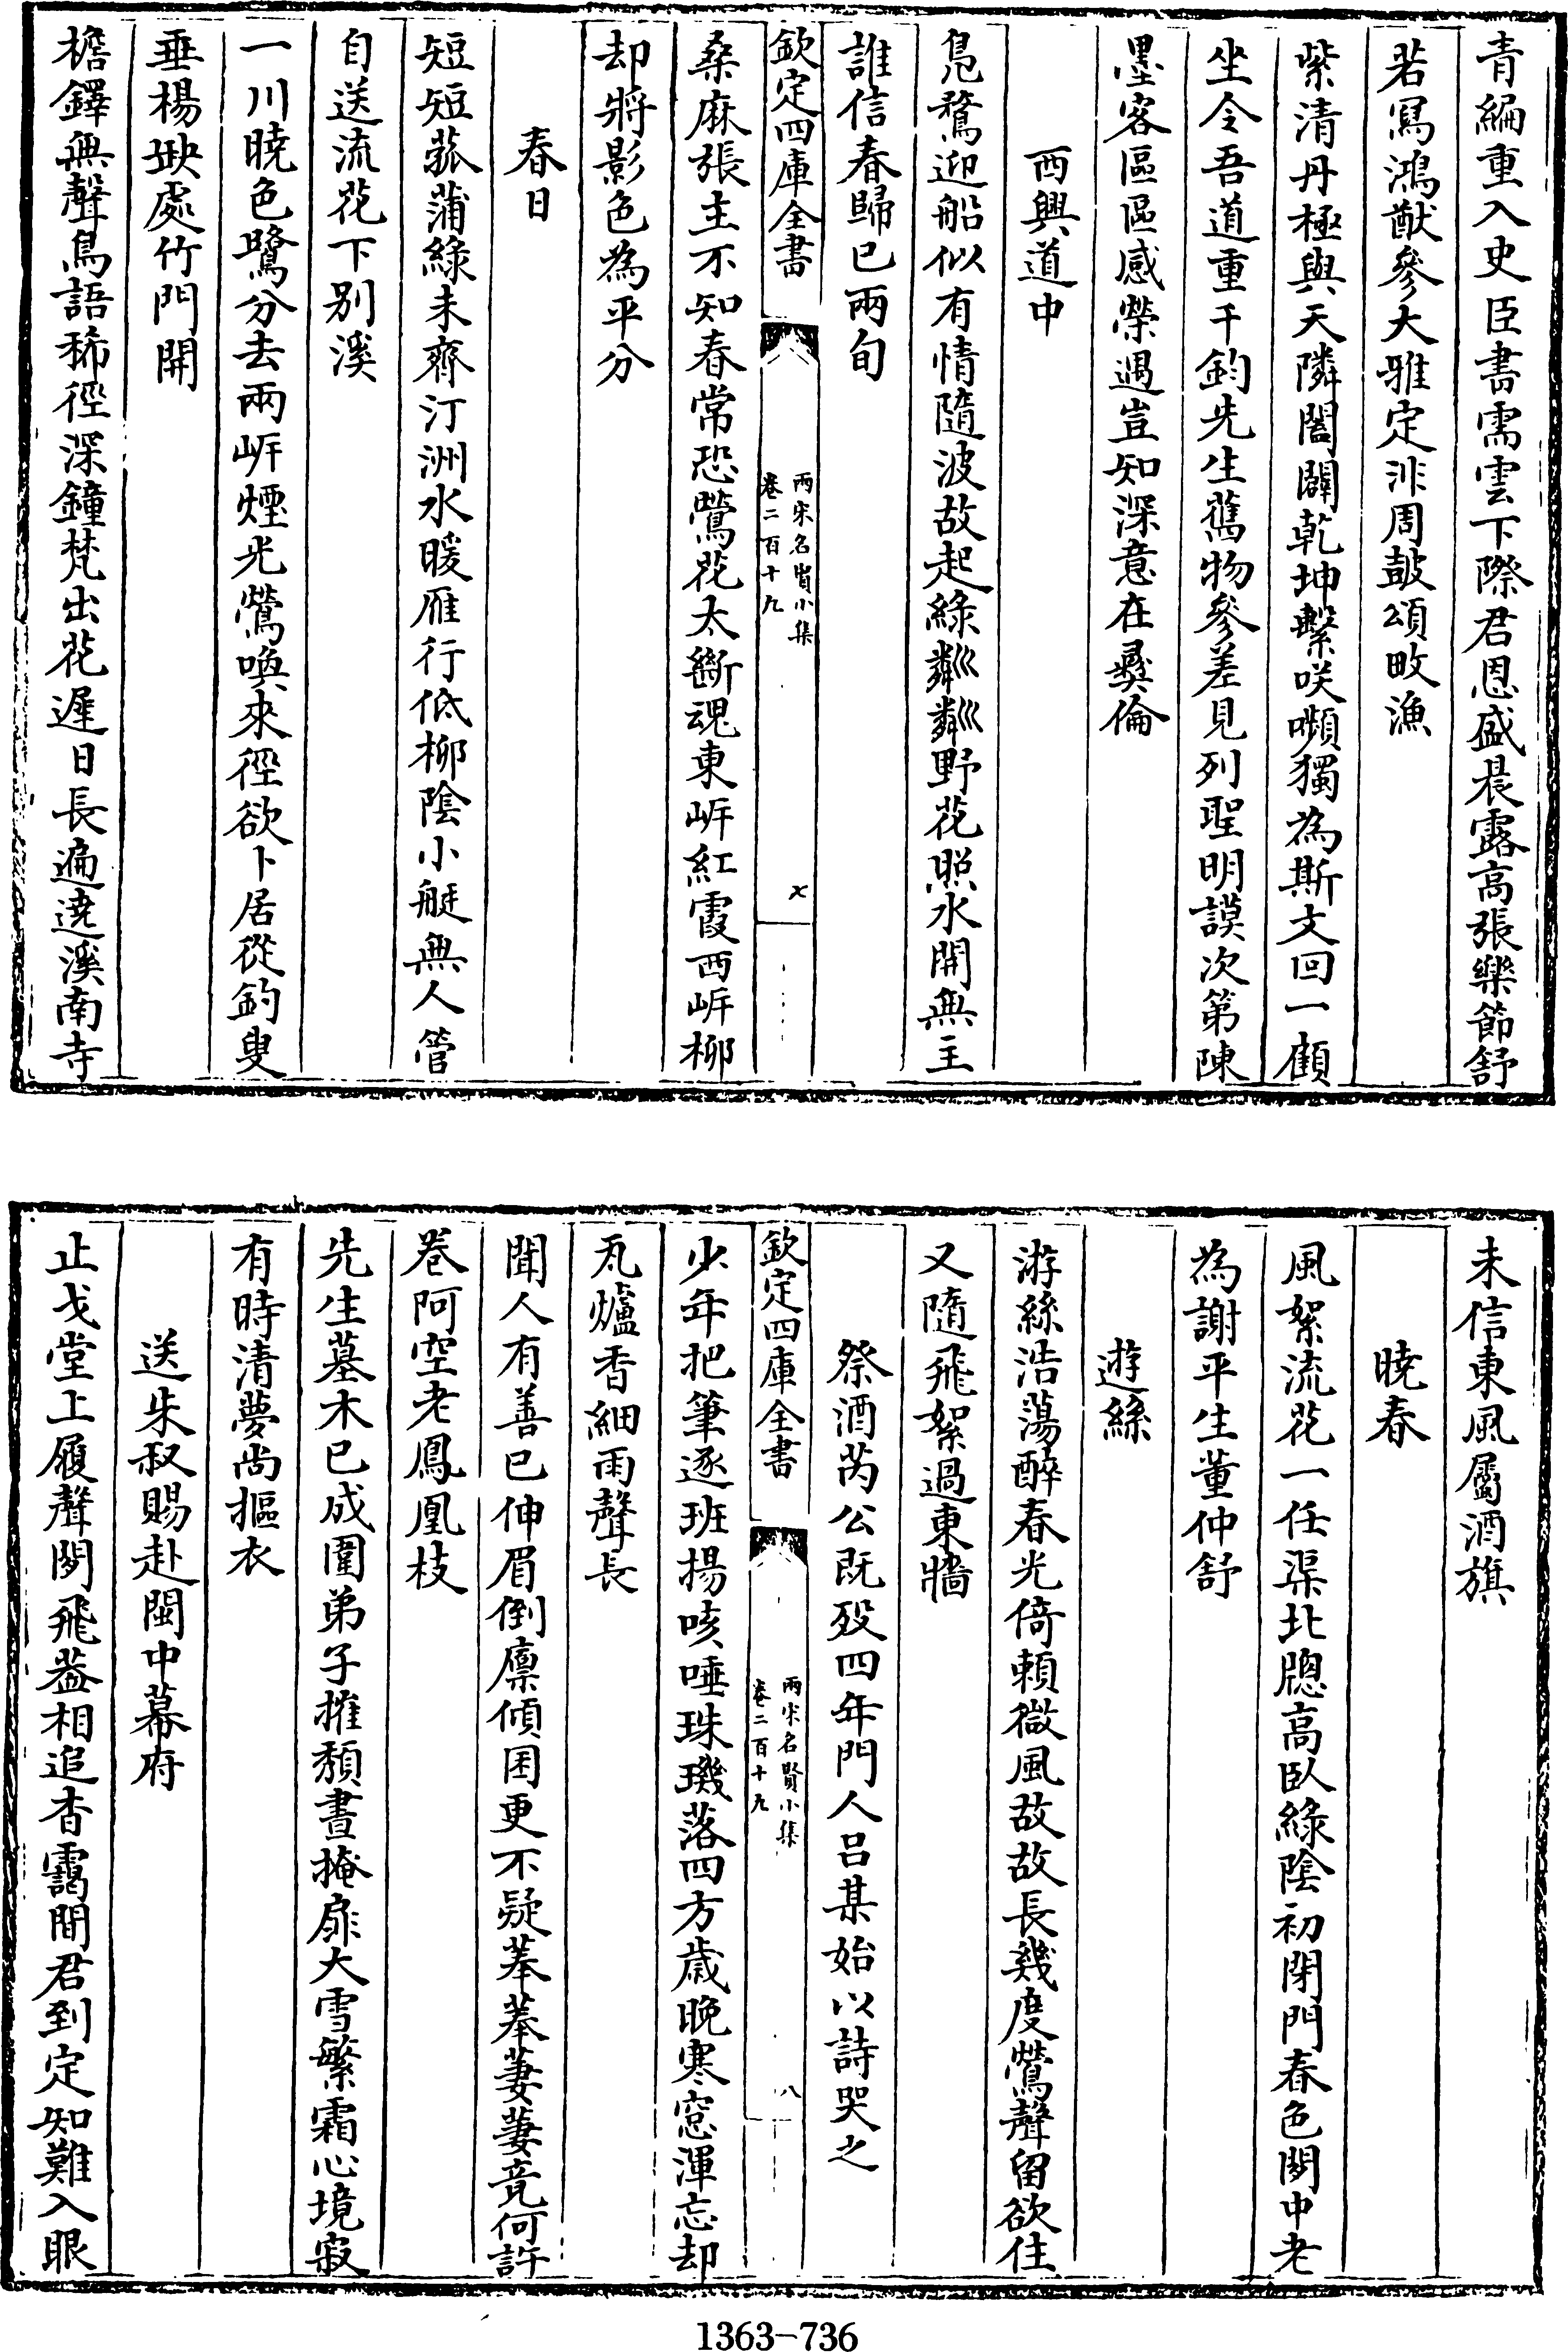 青編重入史臣書需雲下際君恩盛晨露高張樂節舒
若寫鴻猷參大雅定非周鼓頌畋漁
紫清丹極與天隣闔闢乾坤繫咲嚬獨為斯文回一顧
坐令吾道重千鈞先生舊物參差見列聖明謨次第陳
墨客區區感榮遇豈知深意在彞倫
西興道中
鳬鶩迎船似有情隨波故起綠粼粼野花照水開無主
誰信春歸已兩旬
欽定四庫全書
兩宋名賢小集
卷二百十九
七
桑麻張王不知春常恐鶯花太斷魂東㟁紅霞西㟁柳
却將影色為平分
春日
短短菰蒲綠未齊汀洲水暖雁行低柳陰小艇無人管
自送流花下别溪
一川曉色鷺分去兩㟁煙光鶯喚來徑欲卜居從釣叟
垂楊缺處竹門開
檐鐸無聲鳥語稀徑深鐘梵出花遲日長遍遶溪南寺
未信東風屬酒旗
曉春
風絮流花一任渠北牕高臥綠陰初閉門春色閑中老
為謝平生董仲舒
遊絲
游絲浩蕩醉春光倚賴微風故故長幾度鶯聲留欲住
又隨飛絮過東牆
祭酒芮公既歿四年門人呂某始以詩哭之
欽定四庫全書
兩宋名賢小集
卷二百十九
八
少年把筆逐班揚咳唾珠璣落四方歲晚寒窓渾忘却
瓦爐香細雨聲長
聞人有善已伸眉倒廩傾囷更不疑菶菶萋萋竟何許
卷阿空老鳳凰枝
先生墓木已成圍弟子摧頽晝掩扉大雪繁霜心境寂
有時清夢尚摳衣
送朱叔賜赴閩中幕府
止戈堂上履聲閑飛葢相追杳靄間君到定知難入眼
1363-736